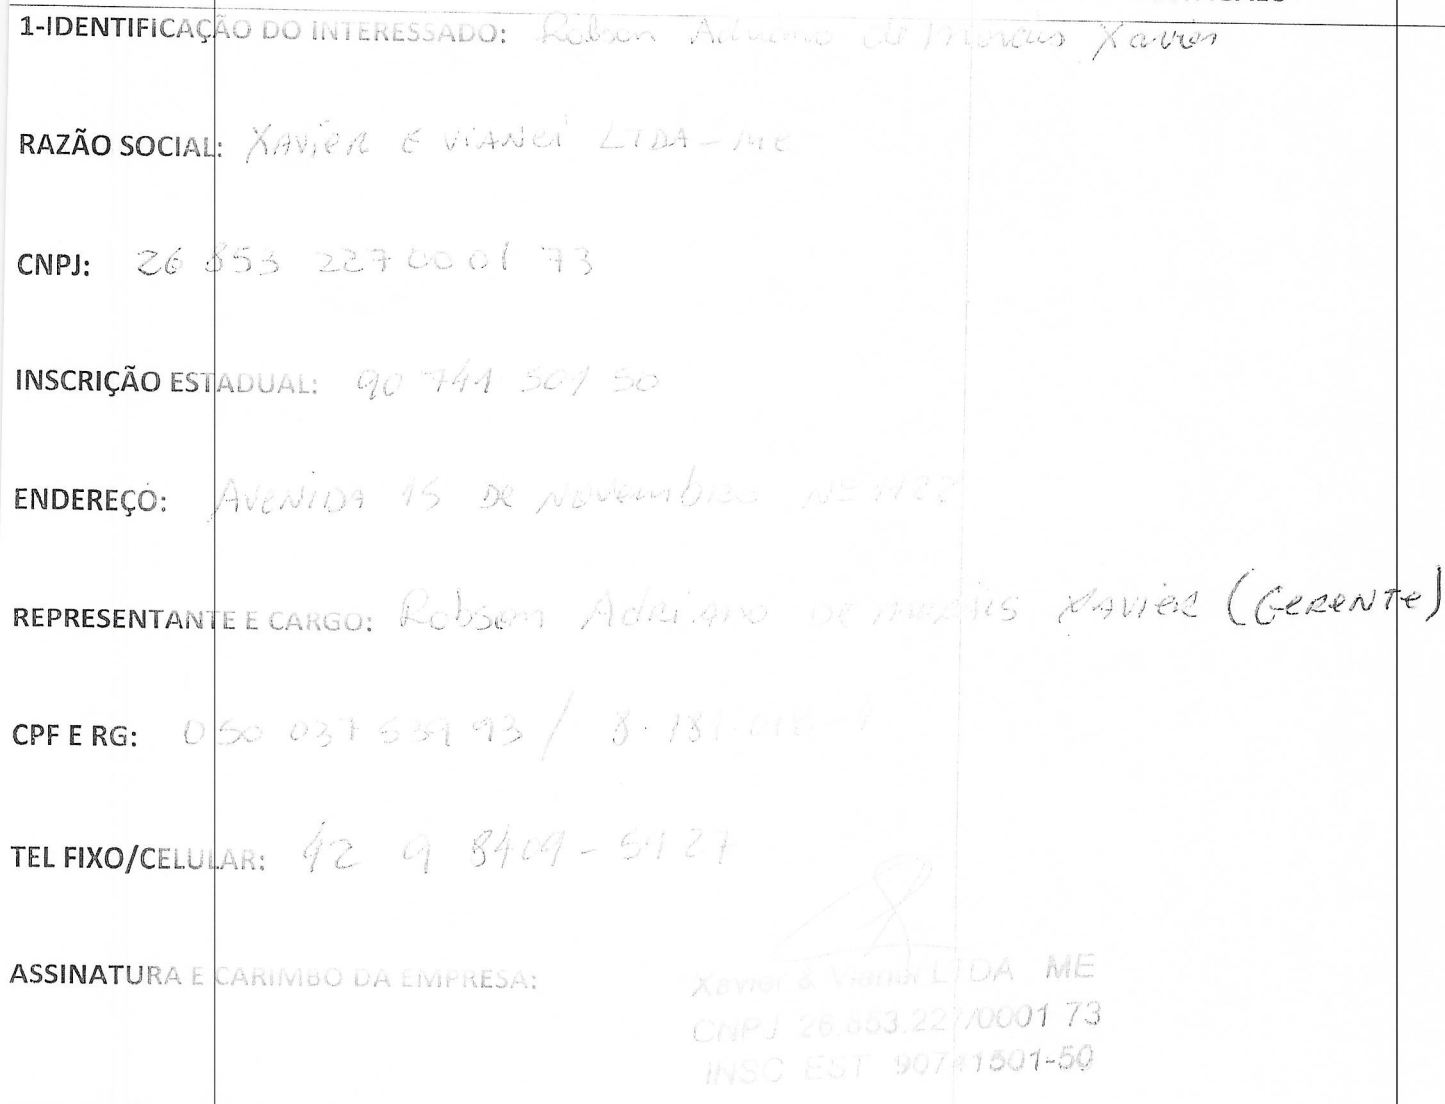 1-IDENTIFICAÇÃO DO INTERESSADO: Robson Adriano de Morais Xavier
RAZÃO SOCIAL: XAVIER E VIANEI LTDA-ME
CNPJ: 26 853 227 0001 73
INSCRIÇÃO ESTADUAL: 90 741 501 50
ENDEREÇO: AVENIDA 15 DE NOVEMBRO Nº 1122
REPRESENTANTE E CARGO: Robson Adriano DE MORAIS XAVIER (GERENTE)
CPF E RG: 050 037 539 93 / 8.187.
TEL FIXO/CELULAR: 42 9 8409-5127
ASSINATURA E CARIMBO DA EMPRESA:
Xavier & Vianei LTDA ME
CNPJ 26.853.227/0001 73
INSC EST 90741501-50